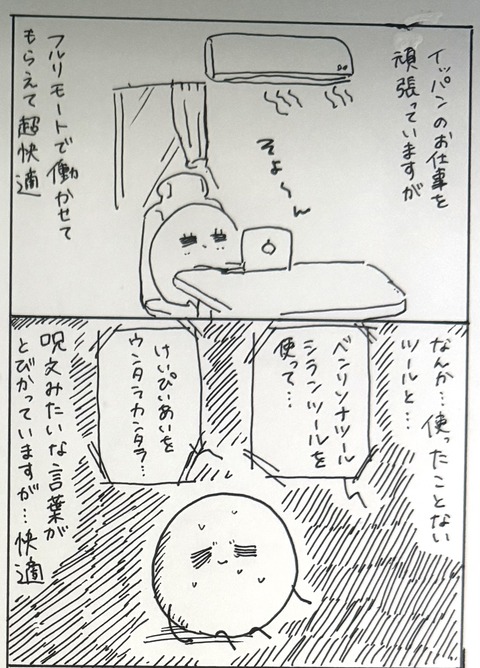 イッパンのお仕事を
頑張っていますが
そよ〜ん
フルリモートで働かせて
もらえて超快適
なんか…使ったことない
ツールと…
ベンリソナツール
シランツールを
使って…
けいぴいあいを
ウンタラカンタラ…
呪文みたいな言葉が
とびかっていますが…快適